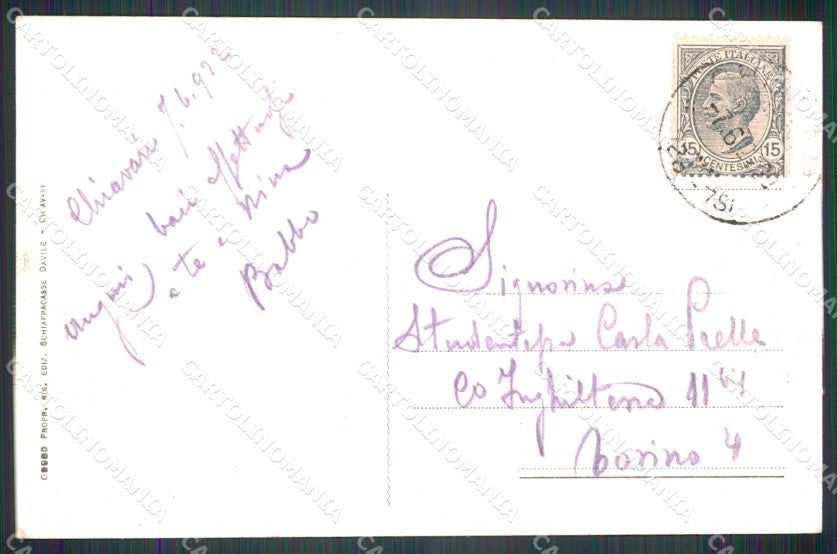 Chiavari 7.6.922
auguri baci affettuosi
a te e Nina
Babbo
09980 PROPR. RIS. EDIZ. SCHIAPPACASSE DAVILE - CHIAVARI
POSTE ITALIANE
15 CENTESIMI 15
Signorina
Studentessa Carla
Co Inghilterra 11
Torino 4
CARTOLINOMANIA